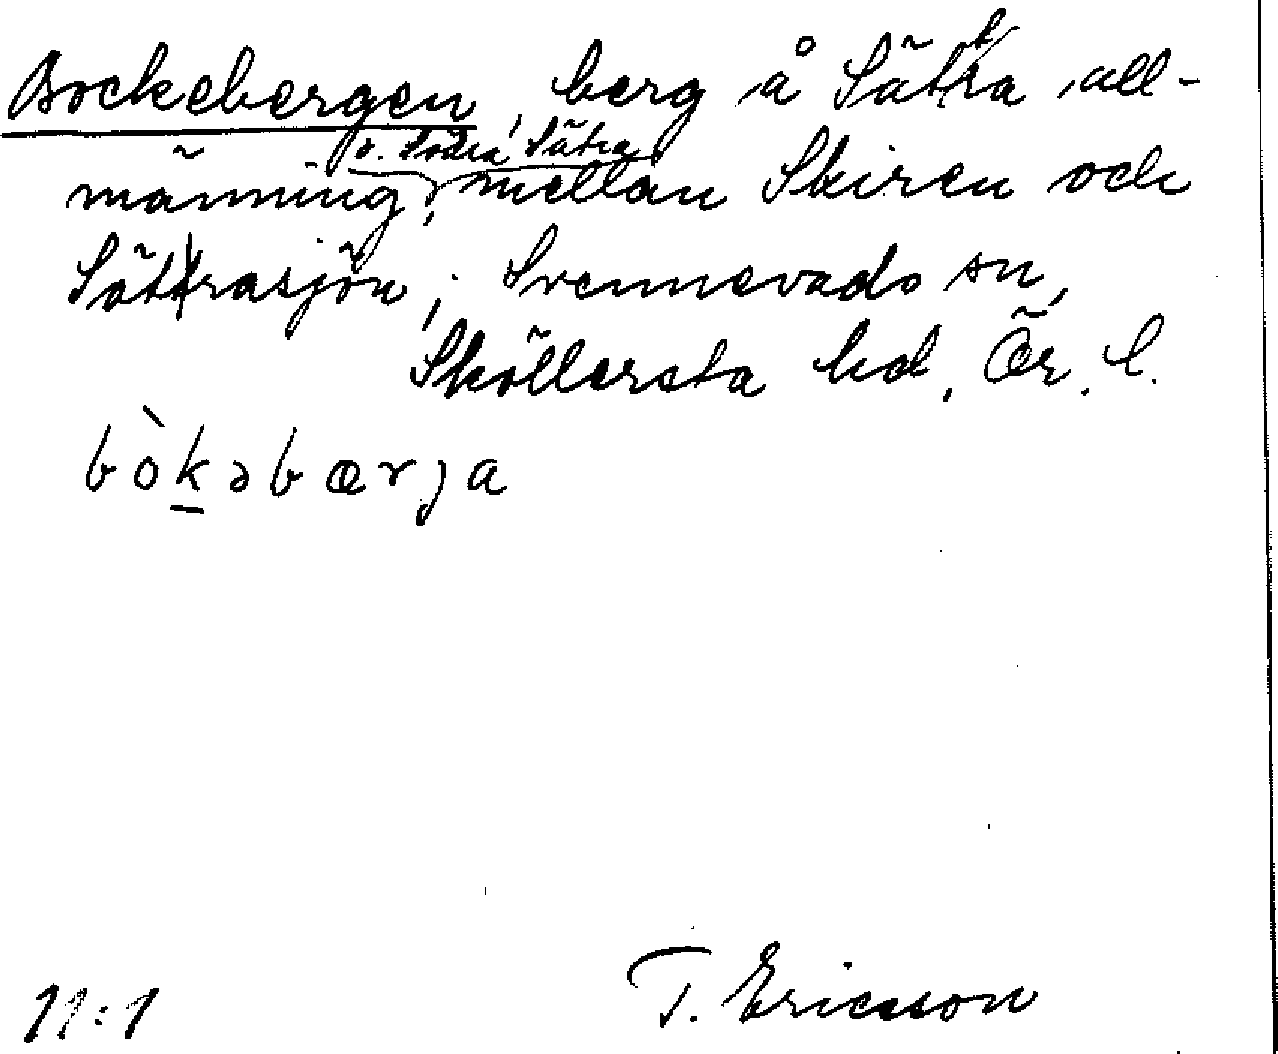 Bockebergen, berg å Sätra all-
ö. Södra Sätra
männing, mellan Skiren och
Sättrasjön; Svennevads sn,
Sköllersta hd, Ör. l.
bòkəbærja
11:1 T. Ericsson